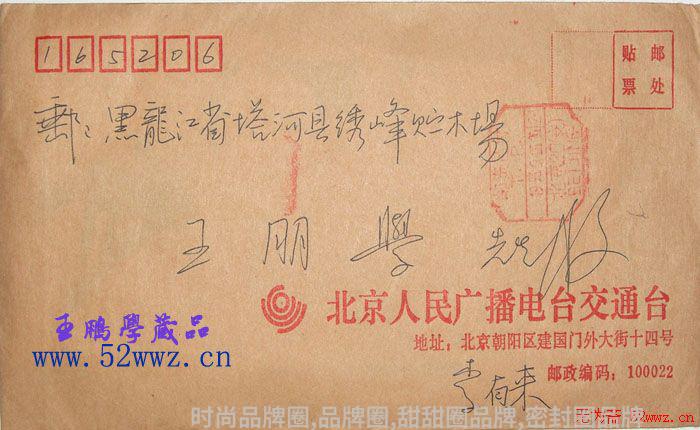 165206
贴邮
票处
郵：黑龍江省塔河县绣峰贮木場
王朋學 先生 收
北京人民广播电台交通台
地址：北京朝阳区建国门外大街十四号
李有来
邮政编码：100022
王鵬學藏品
www.52wwz.cn
时尚品牌圈,品牌圈,甜甜圈品牌,密封圈品牌
52wwz.cn